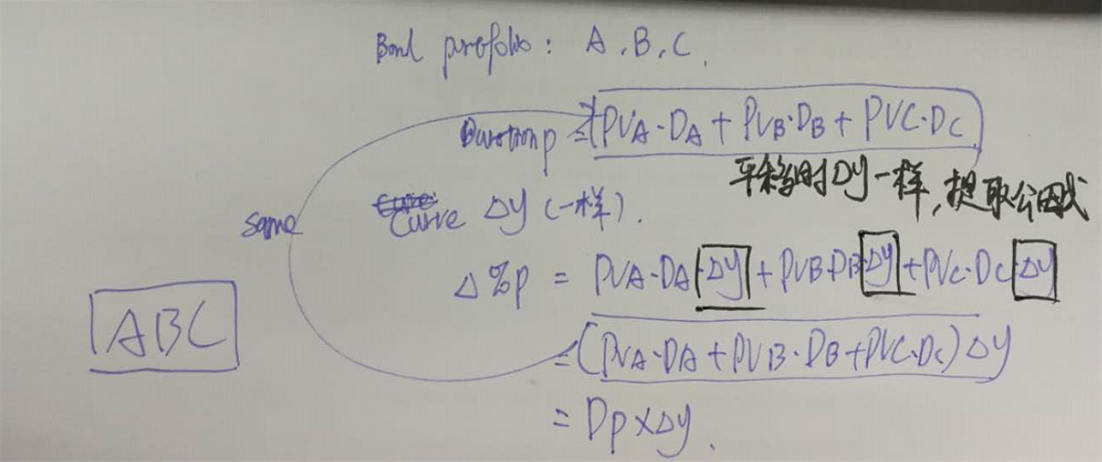 Bond portfolio: A, B, C.
Duration p = PVA·DA + PVB·DB + PVC·DC
平移时Δy一样,提取公因式
same
Curve Δy (一样).
Δ%p = PVA·DA·Δy + PVB·DB·Δy + PVC·DC·Δy
ABC
= (PVA·DA + PVB·DB + PVC·DC) Δy
= Dp × Δy.